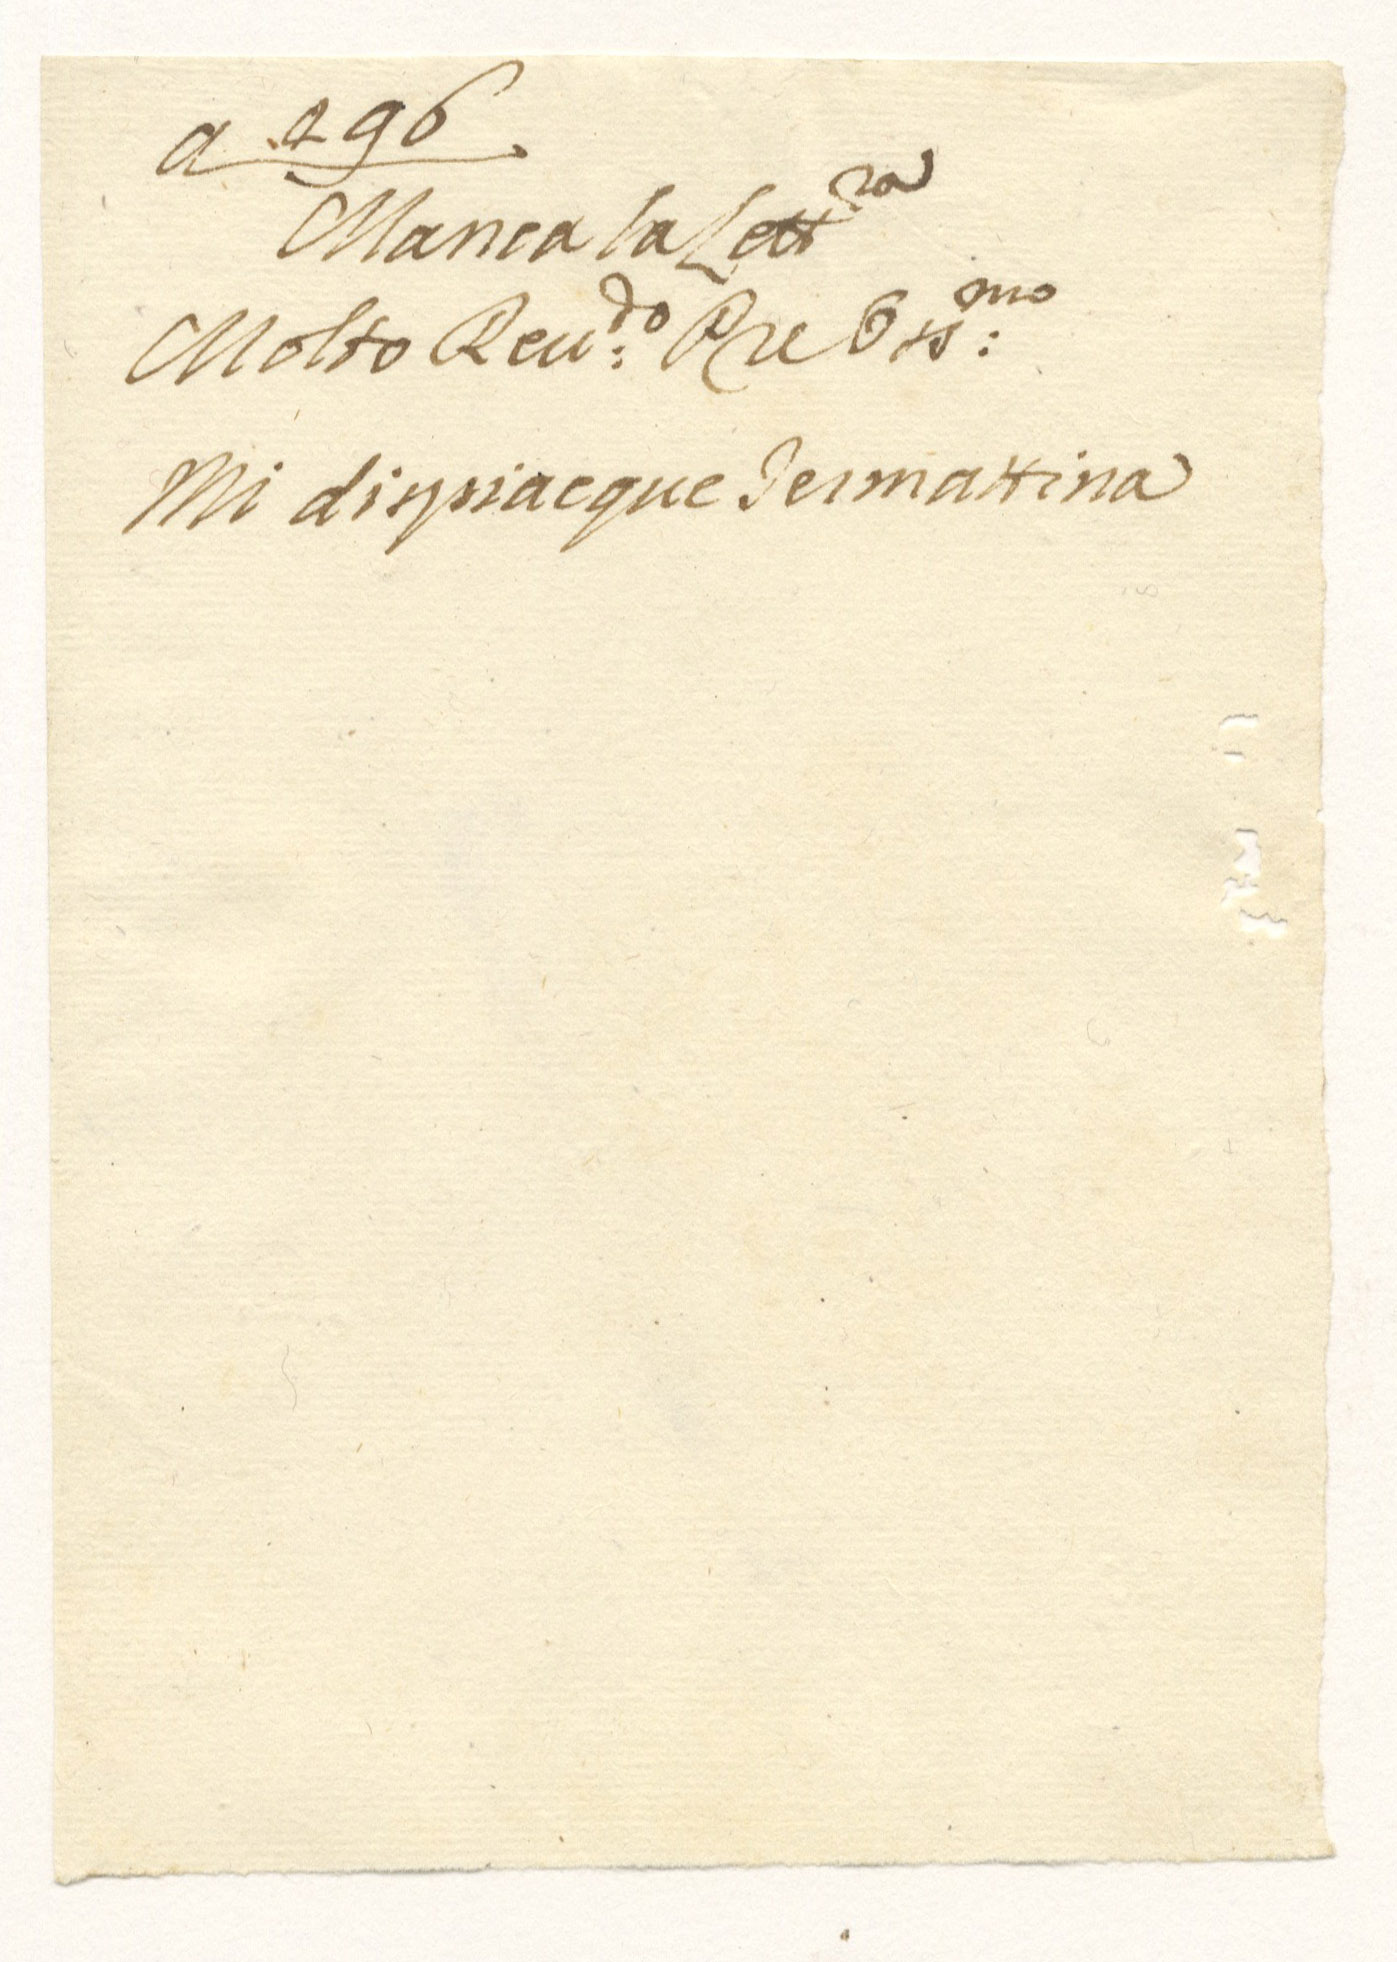 a 296
Manca la Lettra
Molto Reu:do Pre Oss:mo
Mi dispiacque Iermattina